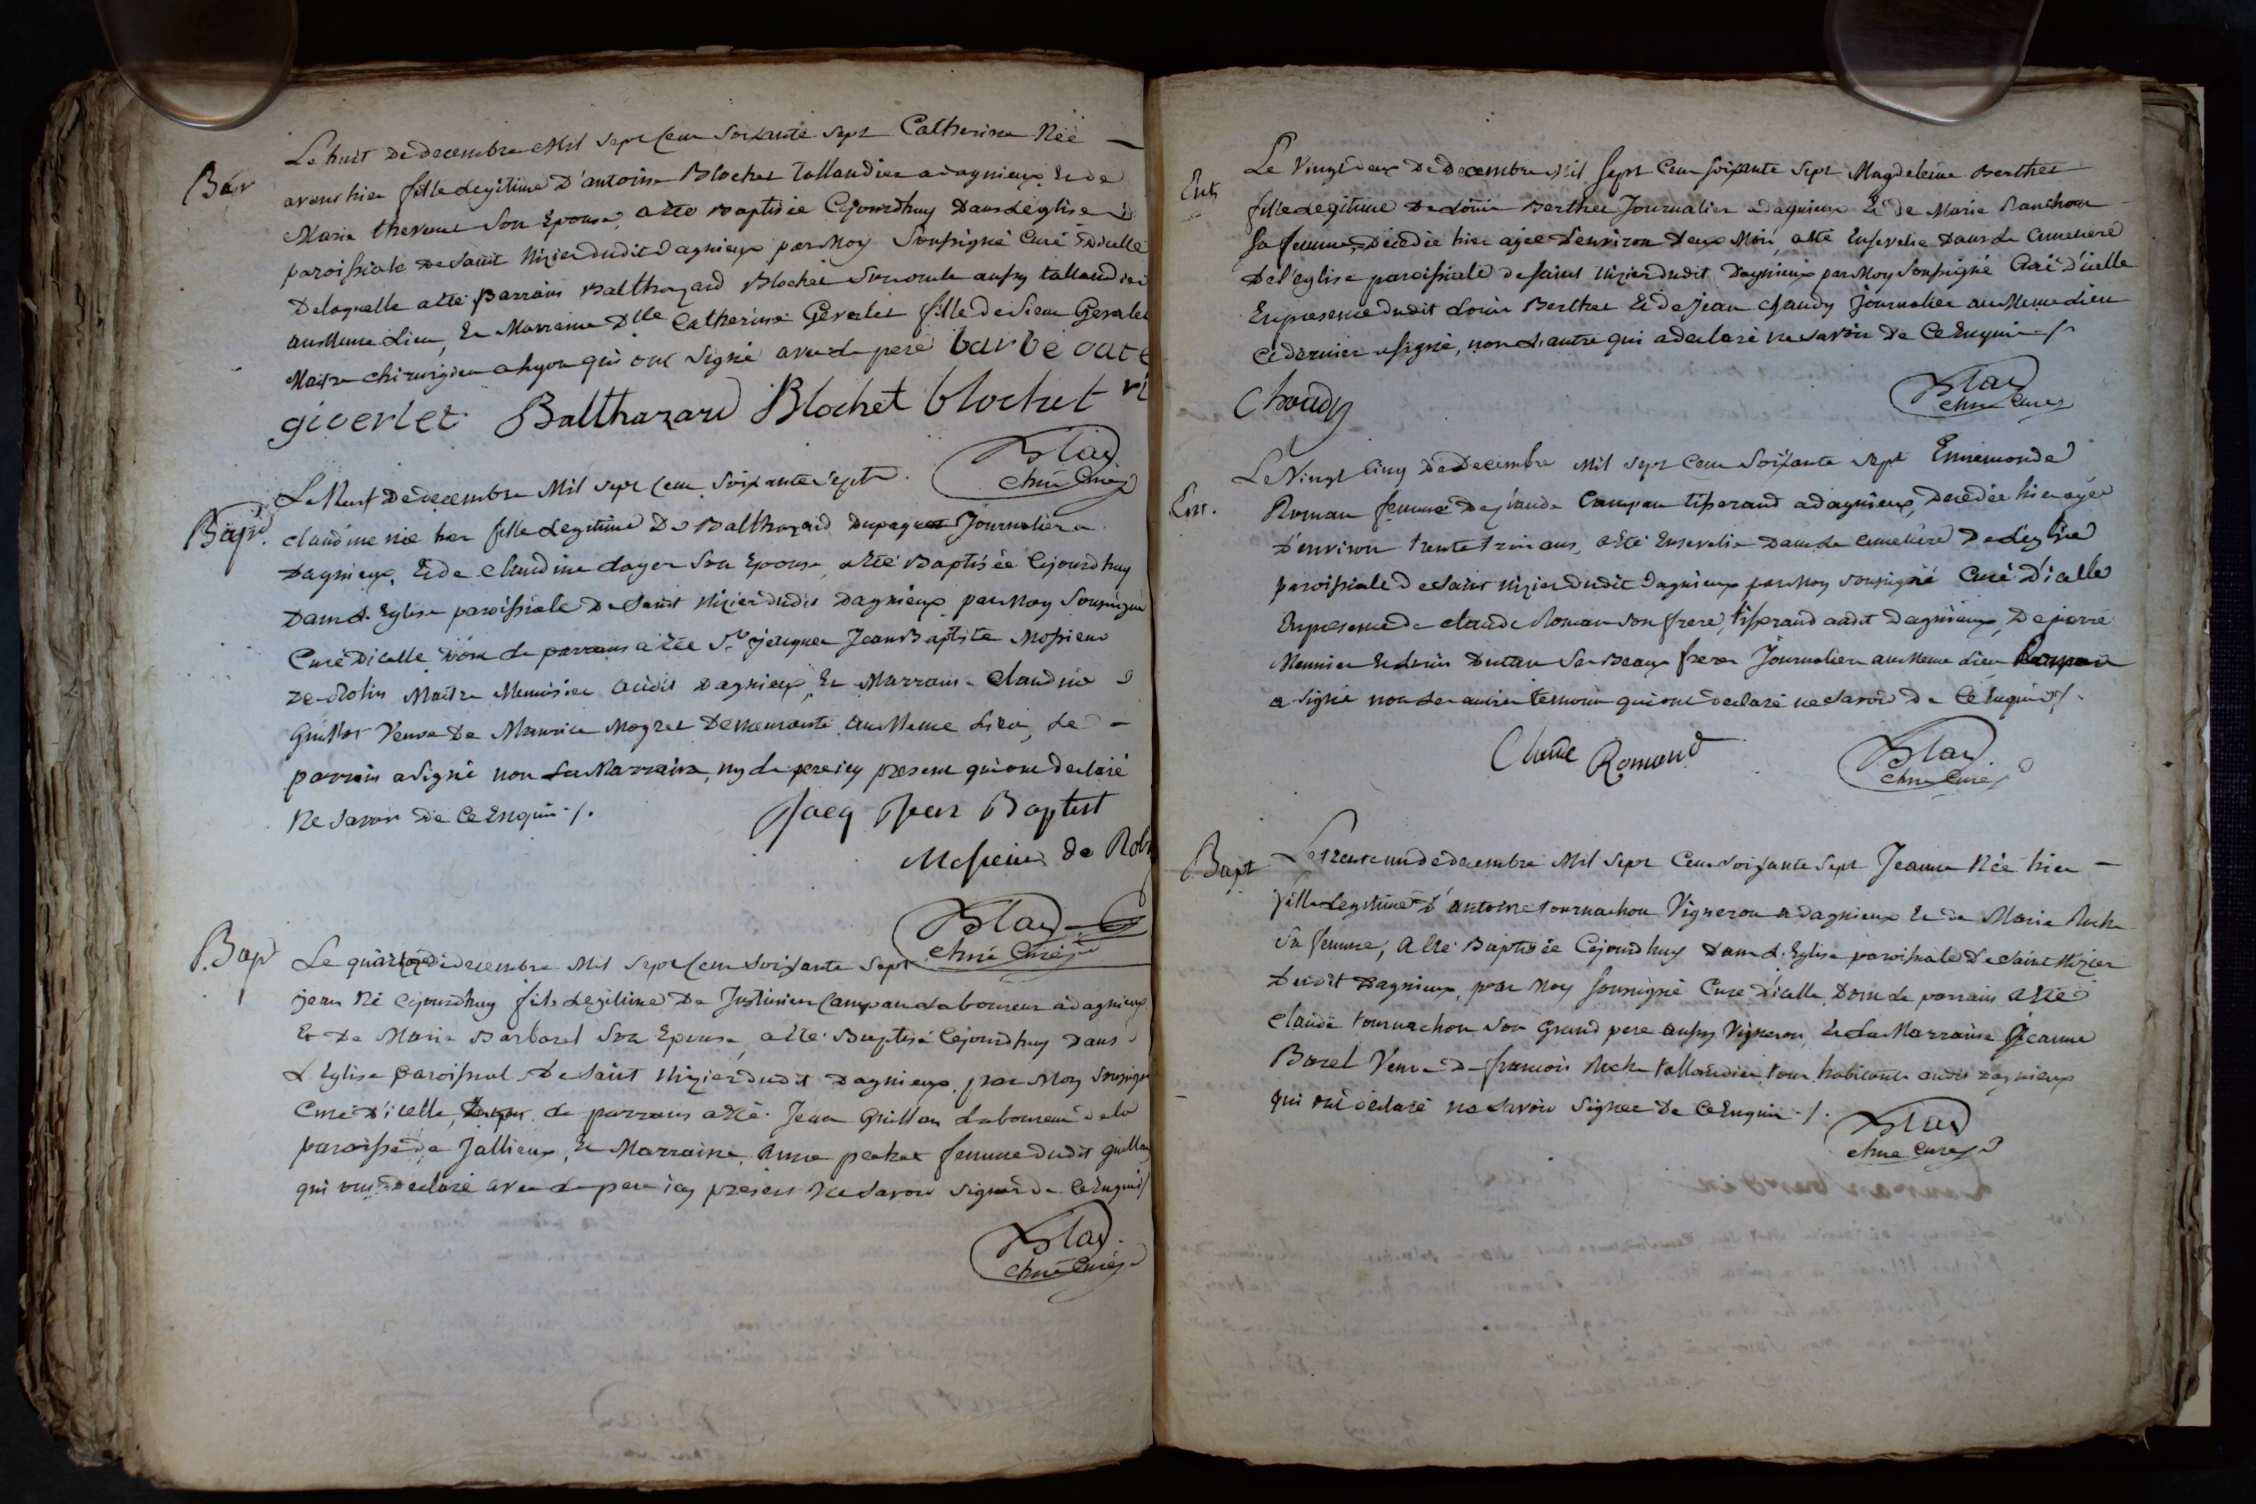 Bap
Le huit De decembre Mil sept Cent Soixante sept Catherine Née
avant hier fille Legitime D'antoine Blochet tallandier a dagnieux Et de
Marie thevenet Son Epouse, a Eté Baptisée Cejourdhuy Dans L'église
paroissiale De Saint Nizier dudit Dagnieux par Moy Soussigné Curé D'icelle
De laquelle a Eté parrain Balthazard Blochet Son oncle aussy tallandier
au Meme Lieu, Et Marraine Dlle Catherine Geverlet fille de Sieur Geverlet
Maitre chirurgien a Lyon qui ont Signé avec Le pere barbe cate
ri
giverlet Balthazard Blochet blochet
Blay
Curé
Bapt.
Le Neuf De decembre Mil sept Cent Soixante Sept
claudine née hier fille Legitime De Balthazard Journalier a
Dagnieux, Et de Claudine Layer Son Epouse, a Eté Baptisée Cejourdhuy
Dans L'Eglise paroissiale De Saint Nizier dudit Dagnieux par Moy Soussigné
Curé D'icelle, Dont Le parrain a Eté Sr. Jacques Jean Baptiste Messieur
De Robin Maitre Menuisier audit Dagnieux, Et Marraine Claudine
Guillot Veuve De Maurice Mogret Demeurante au Meme Lieu, Le
parrain a Signé non La Marraine, ny Le pere icy present qui ont declaré
Ne Savoir De Ce Enquis ./.
Jacq Jean Baptist
Messieur de Rob
Blay
Curé
Bapt
Le quatorze De decembre Mil Sept Cent Soixante Sept
jean Né Cejourdhuy fils Legitime De Justinien Campan Laboureur a dagnieux
Et De Marie Barbaret Son Epouse, a Eté Baptisé Cejourdhuy Dans
L'Eglise paroissial De Saint Nizier dudit Dagnieux par Moy Soussigné
Curé D'icelle, Le parrain a Eté Jean Guillon Laboureur De la
paroisse De Jallieux, Et Marraine, Anne femme dudit guillon
qui ont Declaré avec Le pere icy present Ne Savoir Signer De Ce Enquis
Blay
Curé
Ent.
Le Vingt deux De Decembre Mil Sept Cent Soixante Sept Magdeleine Berthet
fille Legitime De Louis Berthet Journalier a dagnieux Et de Marie Ranchon
Sa femme, Decedée hier agée D'environ Deux Mois, a Eté Ensevelie Dans Le Cimetiere
De l'église paroissiale De Saint Nizier dudit Dagnieux par Moy Soussigné Curé D'icelle
En presence dudit Louis Berthet Et de Jean Chaudy Journalier au Meme Lieu
Ce dernier a signé, non L'autre qui a declaré ne Savoir De Ce Enquis ./.
Chaudy
Blay
Curé
Ent.
Le Vingt Cinq De Decembre Mil sept Cent Soixante Sept Ennemonde
Roman femme De Claude Campan tisserand a dagnieux, Decedée hier agée
D'environ trente trois ans, a Eté Ensevelie Dans Le Cimetiere De L'eglise
paroissiale De Saint Nizier dudit Dagnieux par Moy Soussigné Curé D'icelle
En presence De Claude Roman Son frere, tisserand audit Dagnieux, De pierre
Meunier Et Louis Dutan Ses Beaux freres Journaliers au Meme Lieu
a signé non Les autres temoins qui ont declaré ne Savoir De Ce Enquis ./.
Claude Romand
Blay
Curé
Bapt
Le trente un De decembre Mil Sept Cent Soixante Sept Jeanne Née hier
fille Legitime D'antoine tournachon Vigneron a dagnieux Et De Marie
Sa femme, a Eté Baptisée Cejourdhuy Dans L'Eglise paroissiale De Saint Nizier
Dudit Dagnieux, par Moy Soussigné Curé D'icelle, Dont Le parrain a Eté
Claude tournachon Son Grand pere aussy Vigneron, Et La Marraine Jeanne
Borel Veuve De francois tallandier, tous habitants audit Dagnieux
qui ont declaré ne Savoir Signer De Ce Enquis ./.
Blay
Curé